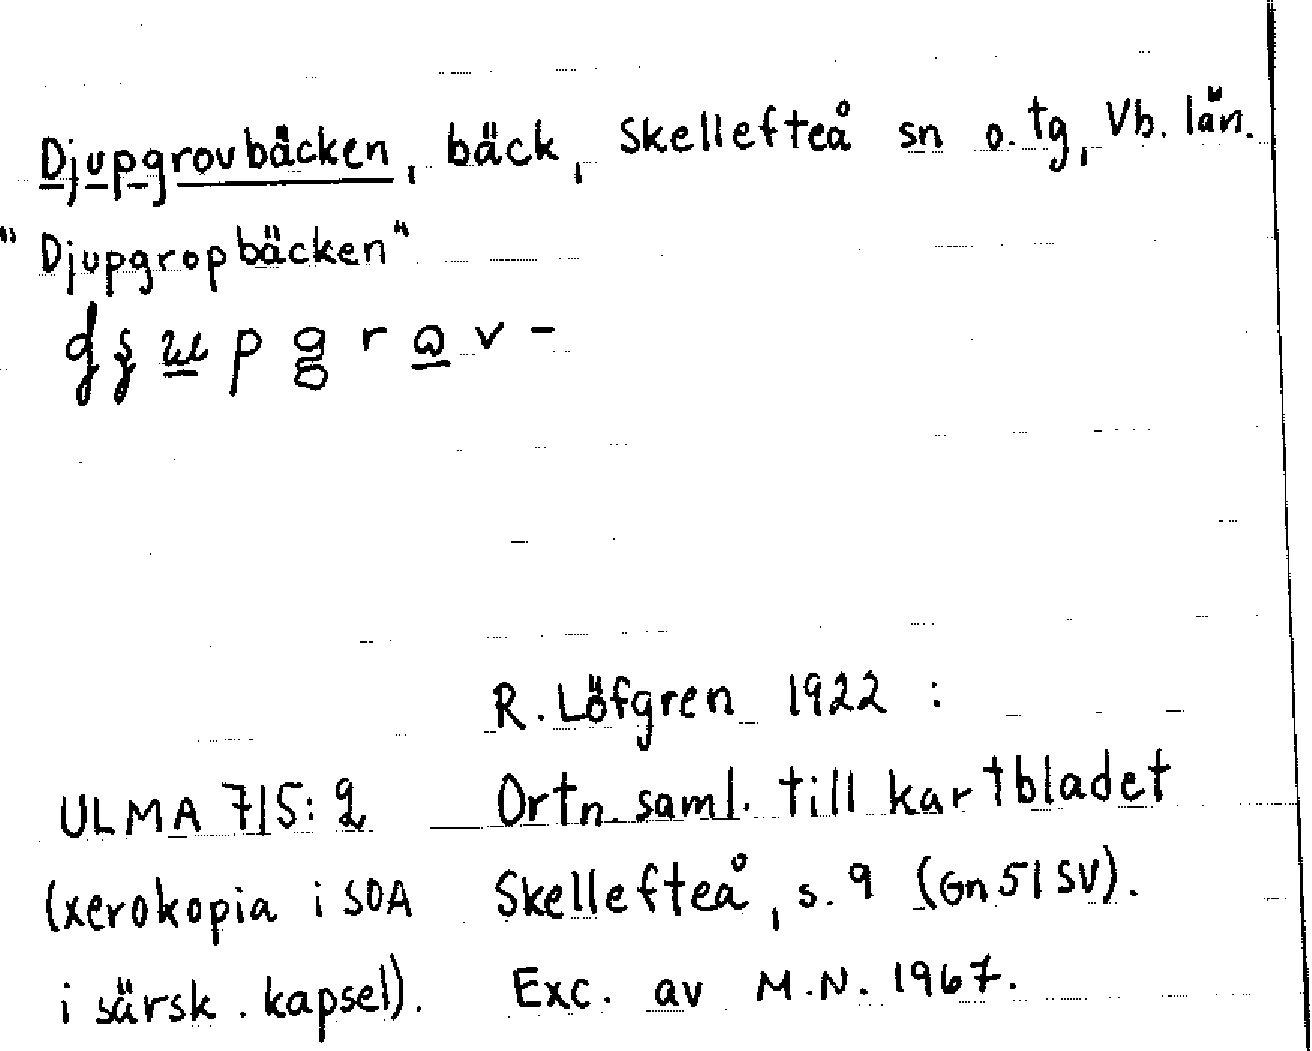 Djupgrovbäcken, bäck, Skellefteå sn o. tg, Vb. län.
"Djupgropbäcken"
R. Löfgren 1922 :
ULMA 715:2 Ortn. saml. till kartbladet
(xerokopia i SOA Skellefteå, s. 9 (Gn 51 SV).
i särsk. kapsel). Exc. av M.N. 1967.